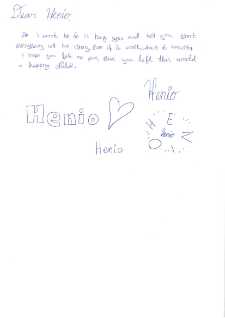 Dear Henio
All I want to do is hug you and tell you that
everything will be okay, even if it
I hope you felt no pain, that you left this world
a happy child.
Henio
Henio
HENIO
Henio
Henio